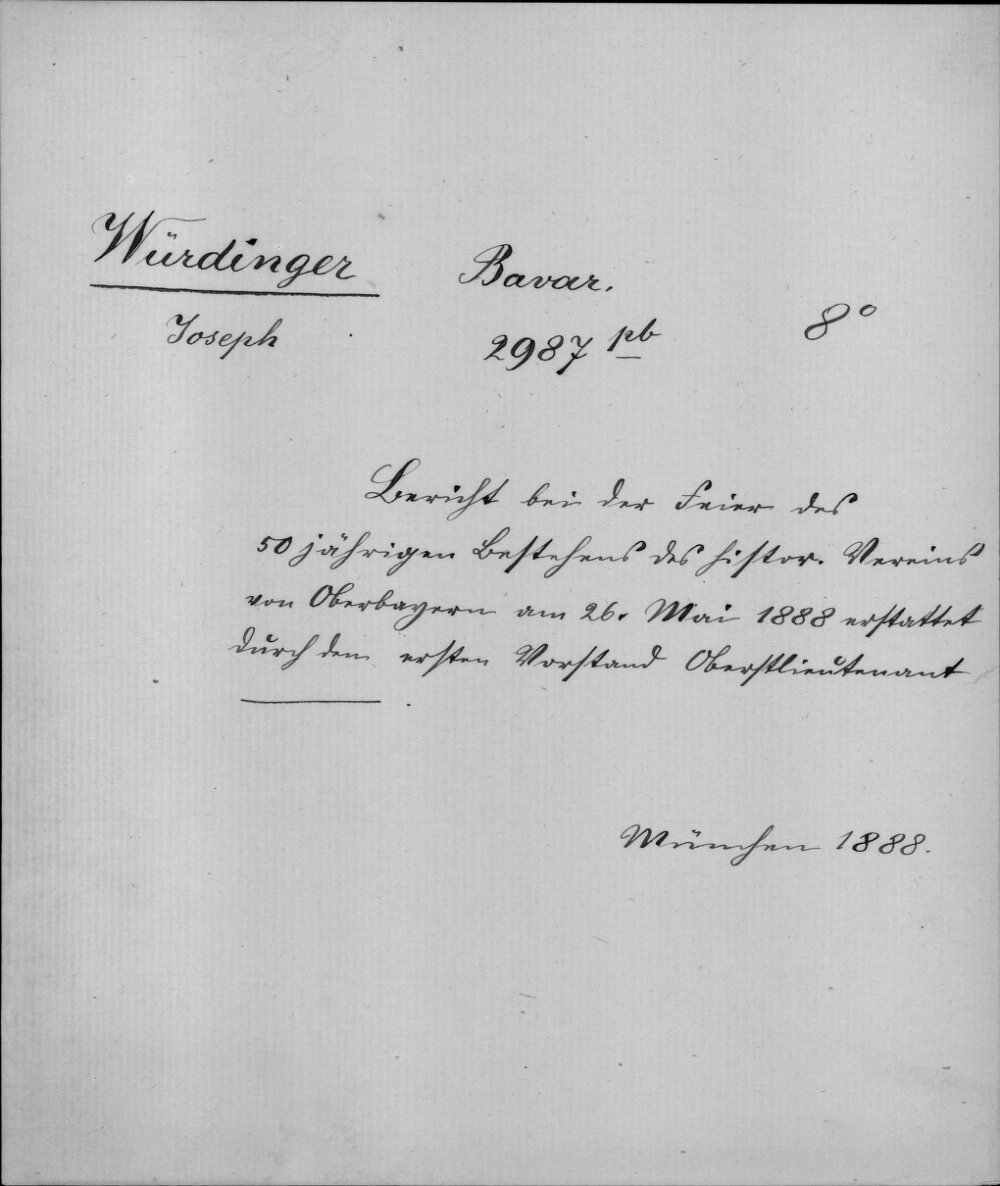 Würdinger
Joseph
Bavar.
2987 pb
8°
Bericht bei der Feier des
50 jährigen Bestehens des histor. Vereins
von Oberbayern am 26. Mai 1888 erstattet
durch den ersten Vorstand Oberstlieutenant
München 1888.